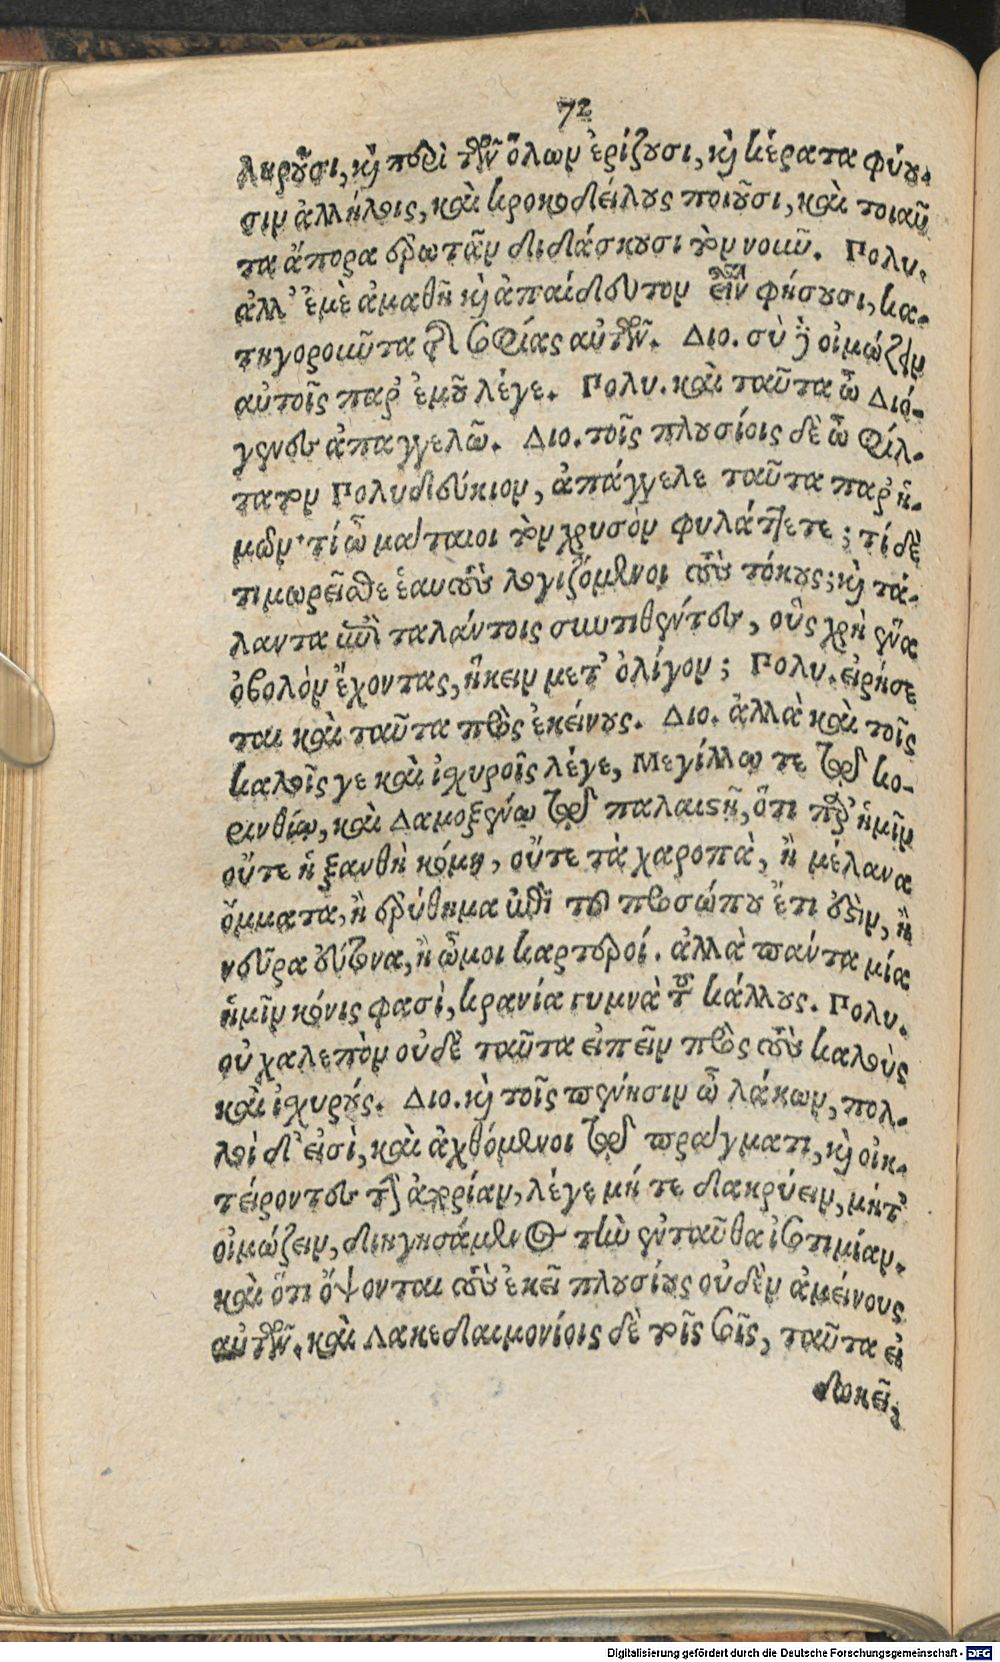 72
ληροῦσι, καὶ περὶ τῶν ὅλων ἐρίζουσι, καὶ κέρατα φύου-
σιν ἀλλήλοις, καὶ κροκοδείλους ποιοῦσι, καὶ τοιαῦ
τα ἄπορα ἐρωτᾶν διδάσκουσι τὸν νοῦν. Πολυ.
ἀλλ' ἐμὲ ἀμαθῆ καὶ ἀπαίδευτον εἶναι φήσουσι, κα-
τηγοροῦντα τῆς σοφίας αὐτῶν. Διο. σὺ δὲ οἰμώζειν
αὐτοῖς παρ' ἐμοῦ λέγε. Πολυ. καὶ ταῦτα ὦ Διό-
γενες ἀπαγγελῶ. Διο. τοῖς πλουσίοις δὲ ὦ φίλ-
τατον Πολυδεύκιον, ἀπάγγελε ταῦτα παρ' ἡ-
μῶν· τί ὦ μάταιοι τὸν χρυσὸν φυλάττετε; τί δὲ
τιμωρεῖσθε ἑαυτοὺς λογιζόμενοι τοὺς τόκους; καὶ τά-
λαντα ἐπὶ ταλάντοις συντιθέντες, οὓς χρὴ ἕνα
ὀβολὸν ἔχοντας, ἥκειν μετ' ὀλίγον; Πολυ. εἰρήσε
ται καὶ ταῦτα πρὸς ἐκείνους. Διο. ἀλλὰ καὶ τοῖς
καλοῖς γε καὶ ἰσχυροῖς λέγε, Μεγίλλῳ τε τῷ κο-
ρινθίῳ, καὶ Δαμοξένῳ τῷ παλαιστῇ, ὅτι παρ' ἡμῖν
οὔτε ἡ ξανθὴ κόμη, οὔτε τὰ χαροπὰ, ἢ μέλανα
ὄμματα, ἢ ἐρύθημα ἐπὶ τοῦ προσώπου ἔτι ἐστὶν, ἢ
νεῦρα εὔτονα, ἢ ὦμοι καρτεροί. ἀλλὰ πάντα μία
ἡμῖν κόνις φασὶ, κρανία γυμνὰ τοῦ κάλλους. Πολυ.
οὐ χαλεπὸν οὐδὲ ταῦτα εἰπεῖν πρὸς τοὺς καλοὺς
καὶ ἰσχυρούς. Διο. καὶ τοῖς πένησιν ὦ λάκων, πολ-
λοὶ δ' εἰσὶ, καὶ ἀχθόμενοι τῷ πράγματι, καὶ οἰκ-
τείροντες τὴν ἀπορίαν, λέγε μήτε δακρύειν, μήτ'
οἰμώζειν, διηγησάμενος τὴν ἐνταῦθα ἰσοτιμίαν.
καὶ ὅτι ὄψονται τοὺς ἐκεῖ πλουσίους οὐδὲν ἀμείνους
αὐτῶν. καὶ Λακεδαιμονίοις δὲ τοῖς σοῖς, ταῦτα εἰ
δοκεῖ,
Digitalisierung gefördert durch die Deutsche Forschungsgemeinschaft - DFG